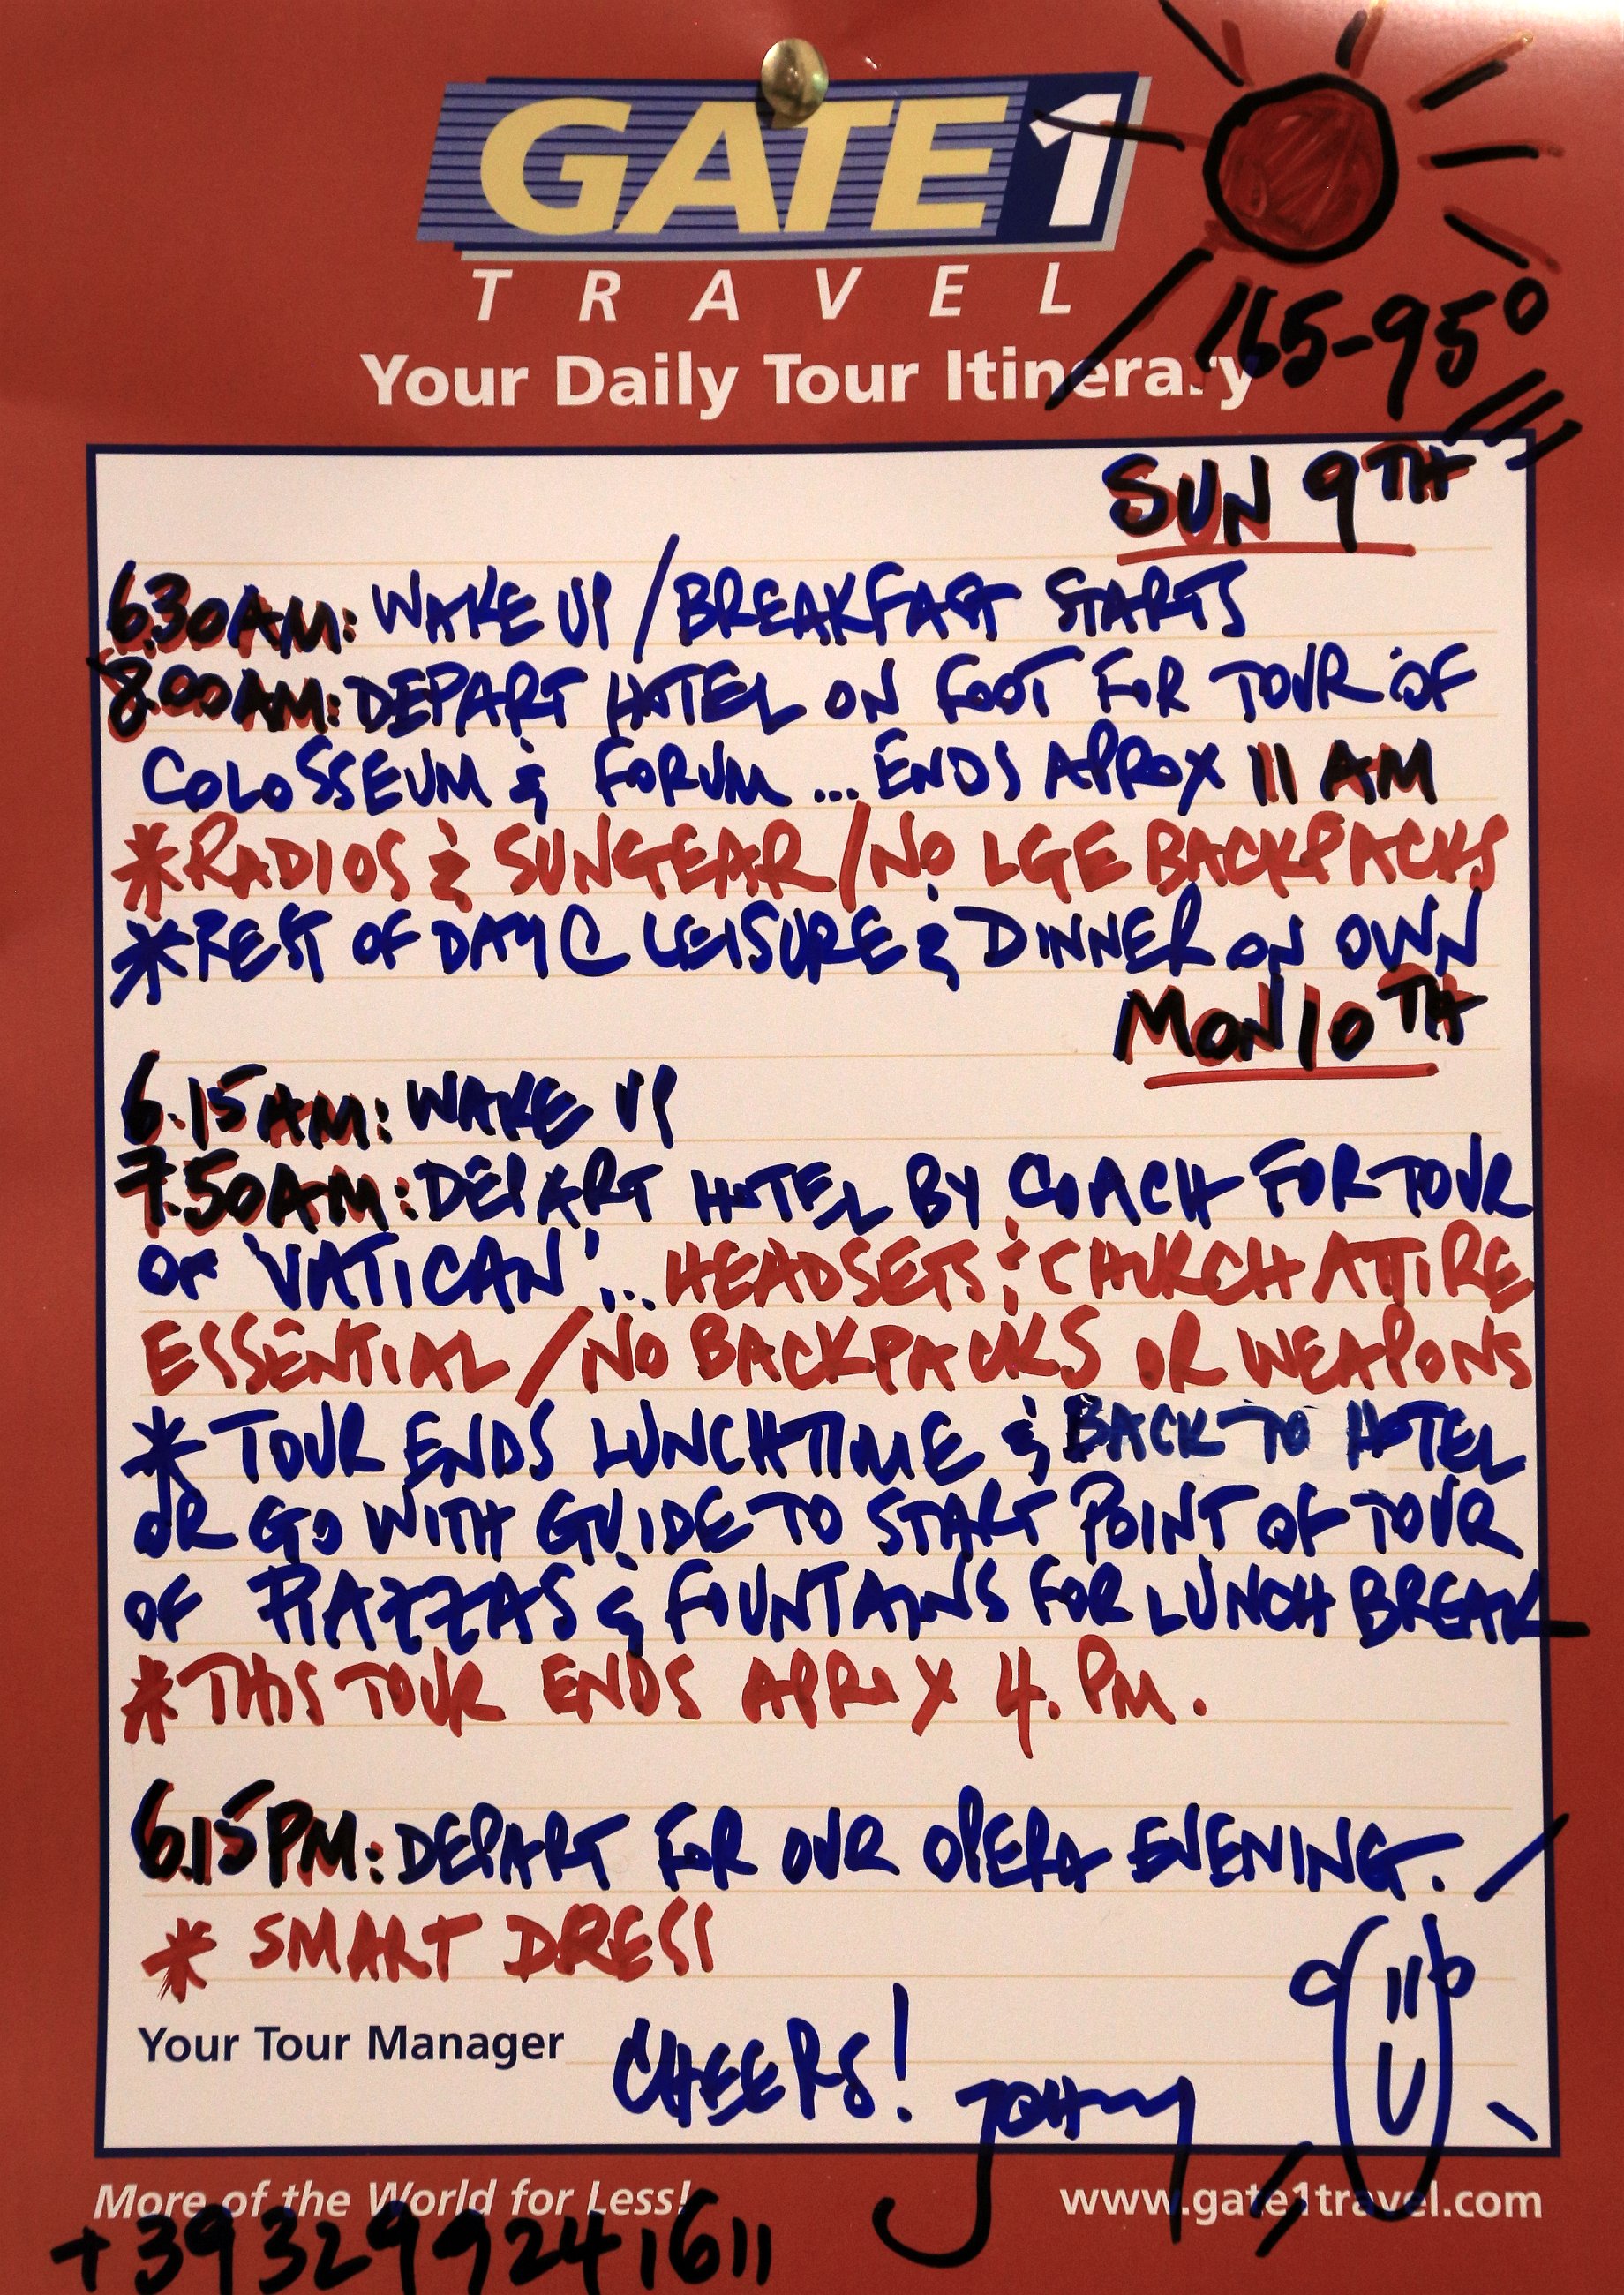 GATE 1
TRAVEL
Your Daily Tour Itinerary
65-95°
SUN 9TH
6.30AM: WAKE UP / BREAKFAST STARTS
8.00AM: DEPART HOTEL ON FOOT FOR TOUR OF
COLOSSEUM & FORUM ... ENDS APROX 11 AM
*RADIOS & SUNGEAR / NO LGE BACKPACKS
*REST OF DAY @ LEISURE & DINNER ON OWN
MON 10TH
6.15AM: WAKE UP
7.50AM: DEPART HOTEL BY COACH FOR TOUR
OF 'VATICAN'... HEADSETS & CHURCH ATTIRE
ESSENTIAL / NO BACKPACKS OR WEAPONS
* TOUR ENDS LUNCHTIME & BACK TO HOTEL
OR GO WITH GUIDE TO START POINT OF TOUR
OF PIAZZAS & FOUNTAINS FOR LUNCH BREAK
*THIS TOUR ENDS APROX 4. PM.
6.15PM: DEPART FOR OUR OPERA EVENING.
* SMART DRESS
Your Tour Manager CHEERS! JOHNY
More of the World for Less! www.gate1travel.com
+393299241611